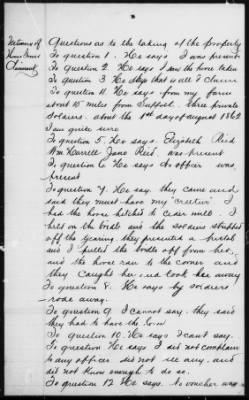 Questions as to the taking of the property
To question 1. He says I was present
To question 2. He says I saw the horse taken
To question 3 He says that is all I claim
To question 4. He says from my farm
about 15 miles from Suffolk. three private
soldiers. about the 1st day of august 1862
I am quite sure
To question 5. He says. Elizabeth Reid
Wm Harrell Jane Reid. was present
To question 6. He says no officer was
present
To question 7. He say. they came and
said they must have my "creetur" I
had the horse hitched to cider mill. I
held on the bridle and the soldiers stripped
off the gearing, they presented a pistol
and I pulled the bridle off from her,
and the horse ran to the corner and
they caught her, and took her away
To question 8. He says by soldiers
rode away.
To question 9 I cannot say. they said
they had to have the horse
To question 10. He says I cant say.
To question He says I did not complain
to any officer did not see any. and
did not know enough to do so.
To question 12 He says. no voucher was